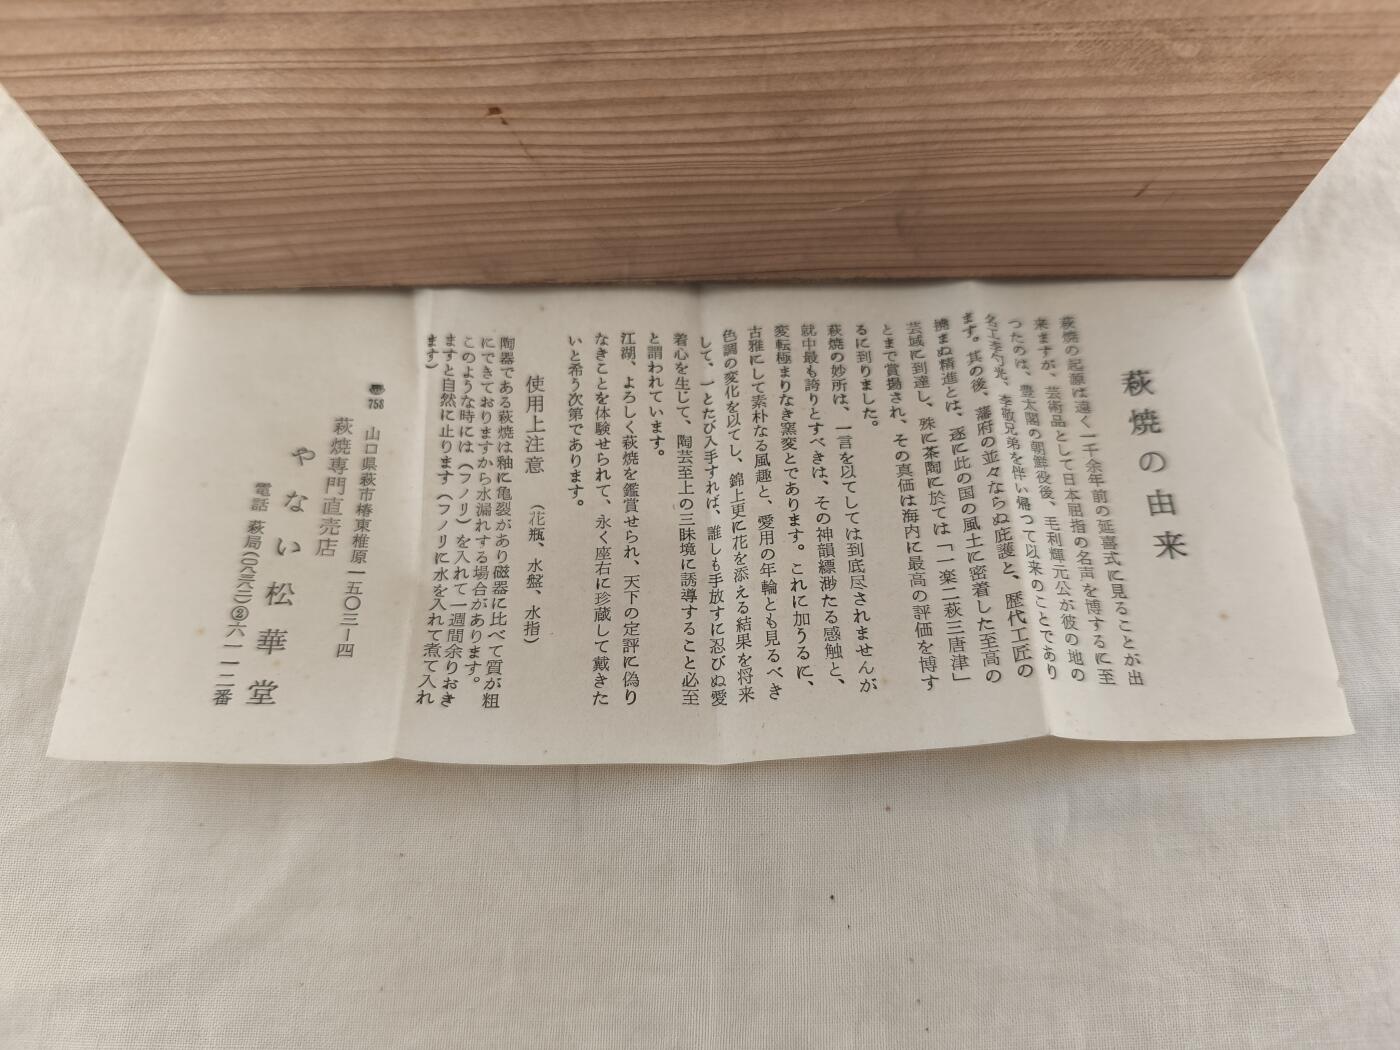 萩焼の由来
萩焼の起源は遠く一千余年前の延喜式に見ることが出
来ますが、芸術品として日本屈指の名声を博するに至
つたのは、豊太閤の朝鮮役後、毛利輝元公が彼の地の
名工李勺光、李敬兄弟を伴い帰つて以来のことであり
ます。其の後、藩府の並々ならぬ庇護と、歴代工匠の
撓まぬ精進とは、逐に此の国の風土に密着した至高の
芸域に到達し、殊に茶陶に於ては「一楽二萩三唐津」
とまで賞揚され、その真価は海内に最高の評価を博す
るに到りました。
萩焼の妙所は、一言を以てしては到底尽されませんが
就中最も誇りとすべきは、その神韻縹渺たる感触と、
変転極まりなき窯変とであります。これに加うるに、
古雅にして素朴なる風趣と、愛用の年輪とも見るべき
色調の変化を以てし、錦上更に花を添える結果を将来
して、一とたび入手すれば、誰しも手放すに忍びぬ愛
着心を生じて、陶芸至上の三昧境に誘導すること必至
と謂われています。
江湖、よろしく萩焼を鑑賞せられ、天下の定評に偽り
なきことを体験せられて、永く座右に珍蔵して戴きた
いと希う次第であります。
使用上注意 (花瓶、水盤、水指)
陶器である萩焼は釉に亀裂があり磁器に比べて質が粗
にできておりますから水漏れする場合があります。
このような時には(フノリ)を入れて一週間余りおき
ますと自然に止ります(フノリに水を入れて煮て入れ
ます)
〒758 山口県萩市椿東椎原一五〇三ー四
萩焼専門直売店
やない松華堂
電話 萩局(〇八三八二)②六一一二番